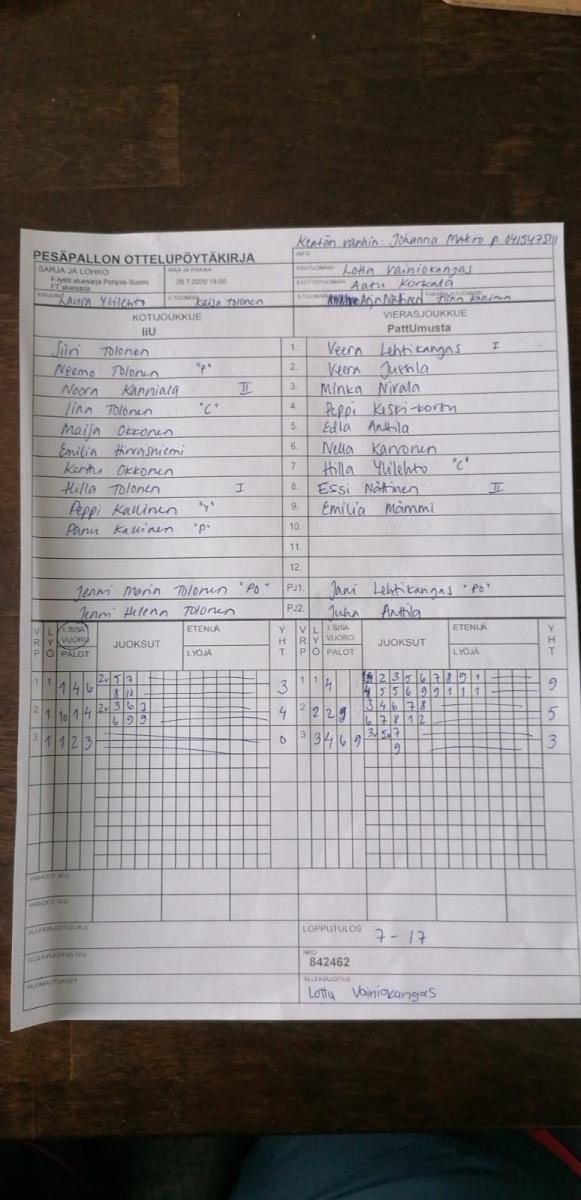 Kentän vanhin: Johanna Makro p.
PESÄPALLON OTTELUPÖYTÄKIRJA
INFO
SARJA JA LOHKO
F-tytöt aluesarja Pohjois-Suomi
FT aluesarja
AIKA JA PAIKKA
28.7.2020 18:00
PÄÄTUOMARI Lotta Vainiokangas
SYÖTTÖTUOMARI Aatu Korkala
KIRJURI Laura Ylilehto
2-TUOMARI Keijo Tolonen
3-TUOMARI Arja Nätinen
KOTIJOUKKUE VIERASJOUKKUE
IiU PattUmusta
Siiri Tolonen 1. Veera Lehtikangas I
Neemo Tolonen "P" 2. Veera Jussila
Noora Kanniala II 3. Minka Nivala
Iina Tolonen "C" 4. Peppi Keski-Korsu
Maija Okkonen 5. Edla Anttila
Emilia Hirvasniemi 6. Nella Karvonen
Kerttu Okkonen 7. Hilla Ylilehto "C"
Hilla Tolonen I 8. Essi Nättinen II
Peppi Kallinen "Y" 9. Emilia Mämmi
Panu Kallinen "P" 10.
11.
12.
Jenni Maria Tolonen "PO" PJ1. Jani Lehtikangas "PO"
Jenni Helena Tolonen PJ2. Juha Anttila
VRP LYÖ 1.SISÄ VUORO PALOT JUOKSUT ETENIJÄ LYÖJÄ YHT VRP LYÖ VUORO PALOT JUOKSUT ETENIJÄ LYÖJÄ YHT
1 1 1 4 6 5 7 3 1 1 4 2 3 5 6 7 8 9 1 9
8 10 4 5 5 6 9 9 1 1 1
2 1 10 1 4 3 6 7 4 2 2 2 9 3 4 6 7 8 5
6 9 9 6 7 8 1 2
3 1 1 2 3 0 3 3 4 6 9 7 3
9
VAIHDOT (KJ)
VAIHDOT (VJ)
ALLEKIRJOITUS (KJ) LOPPUTULOS 7-17
ALLEKIRJOITUS (VJ) NRO
842462
HUOMAUTUKSET ALLEKIRJOITUS
Lotta Vainiokangas